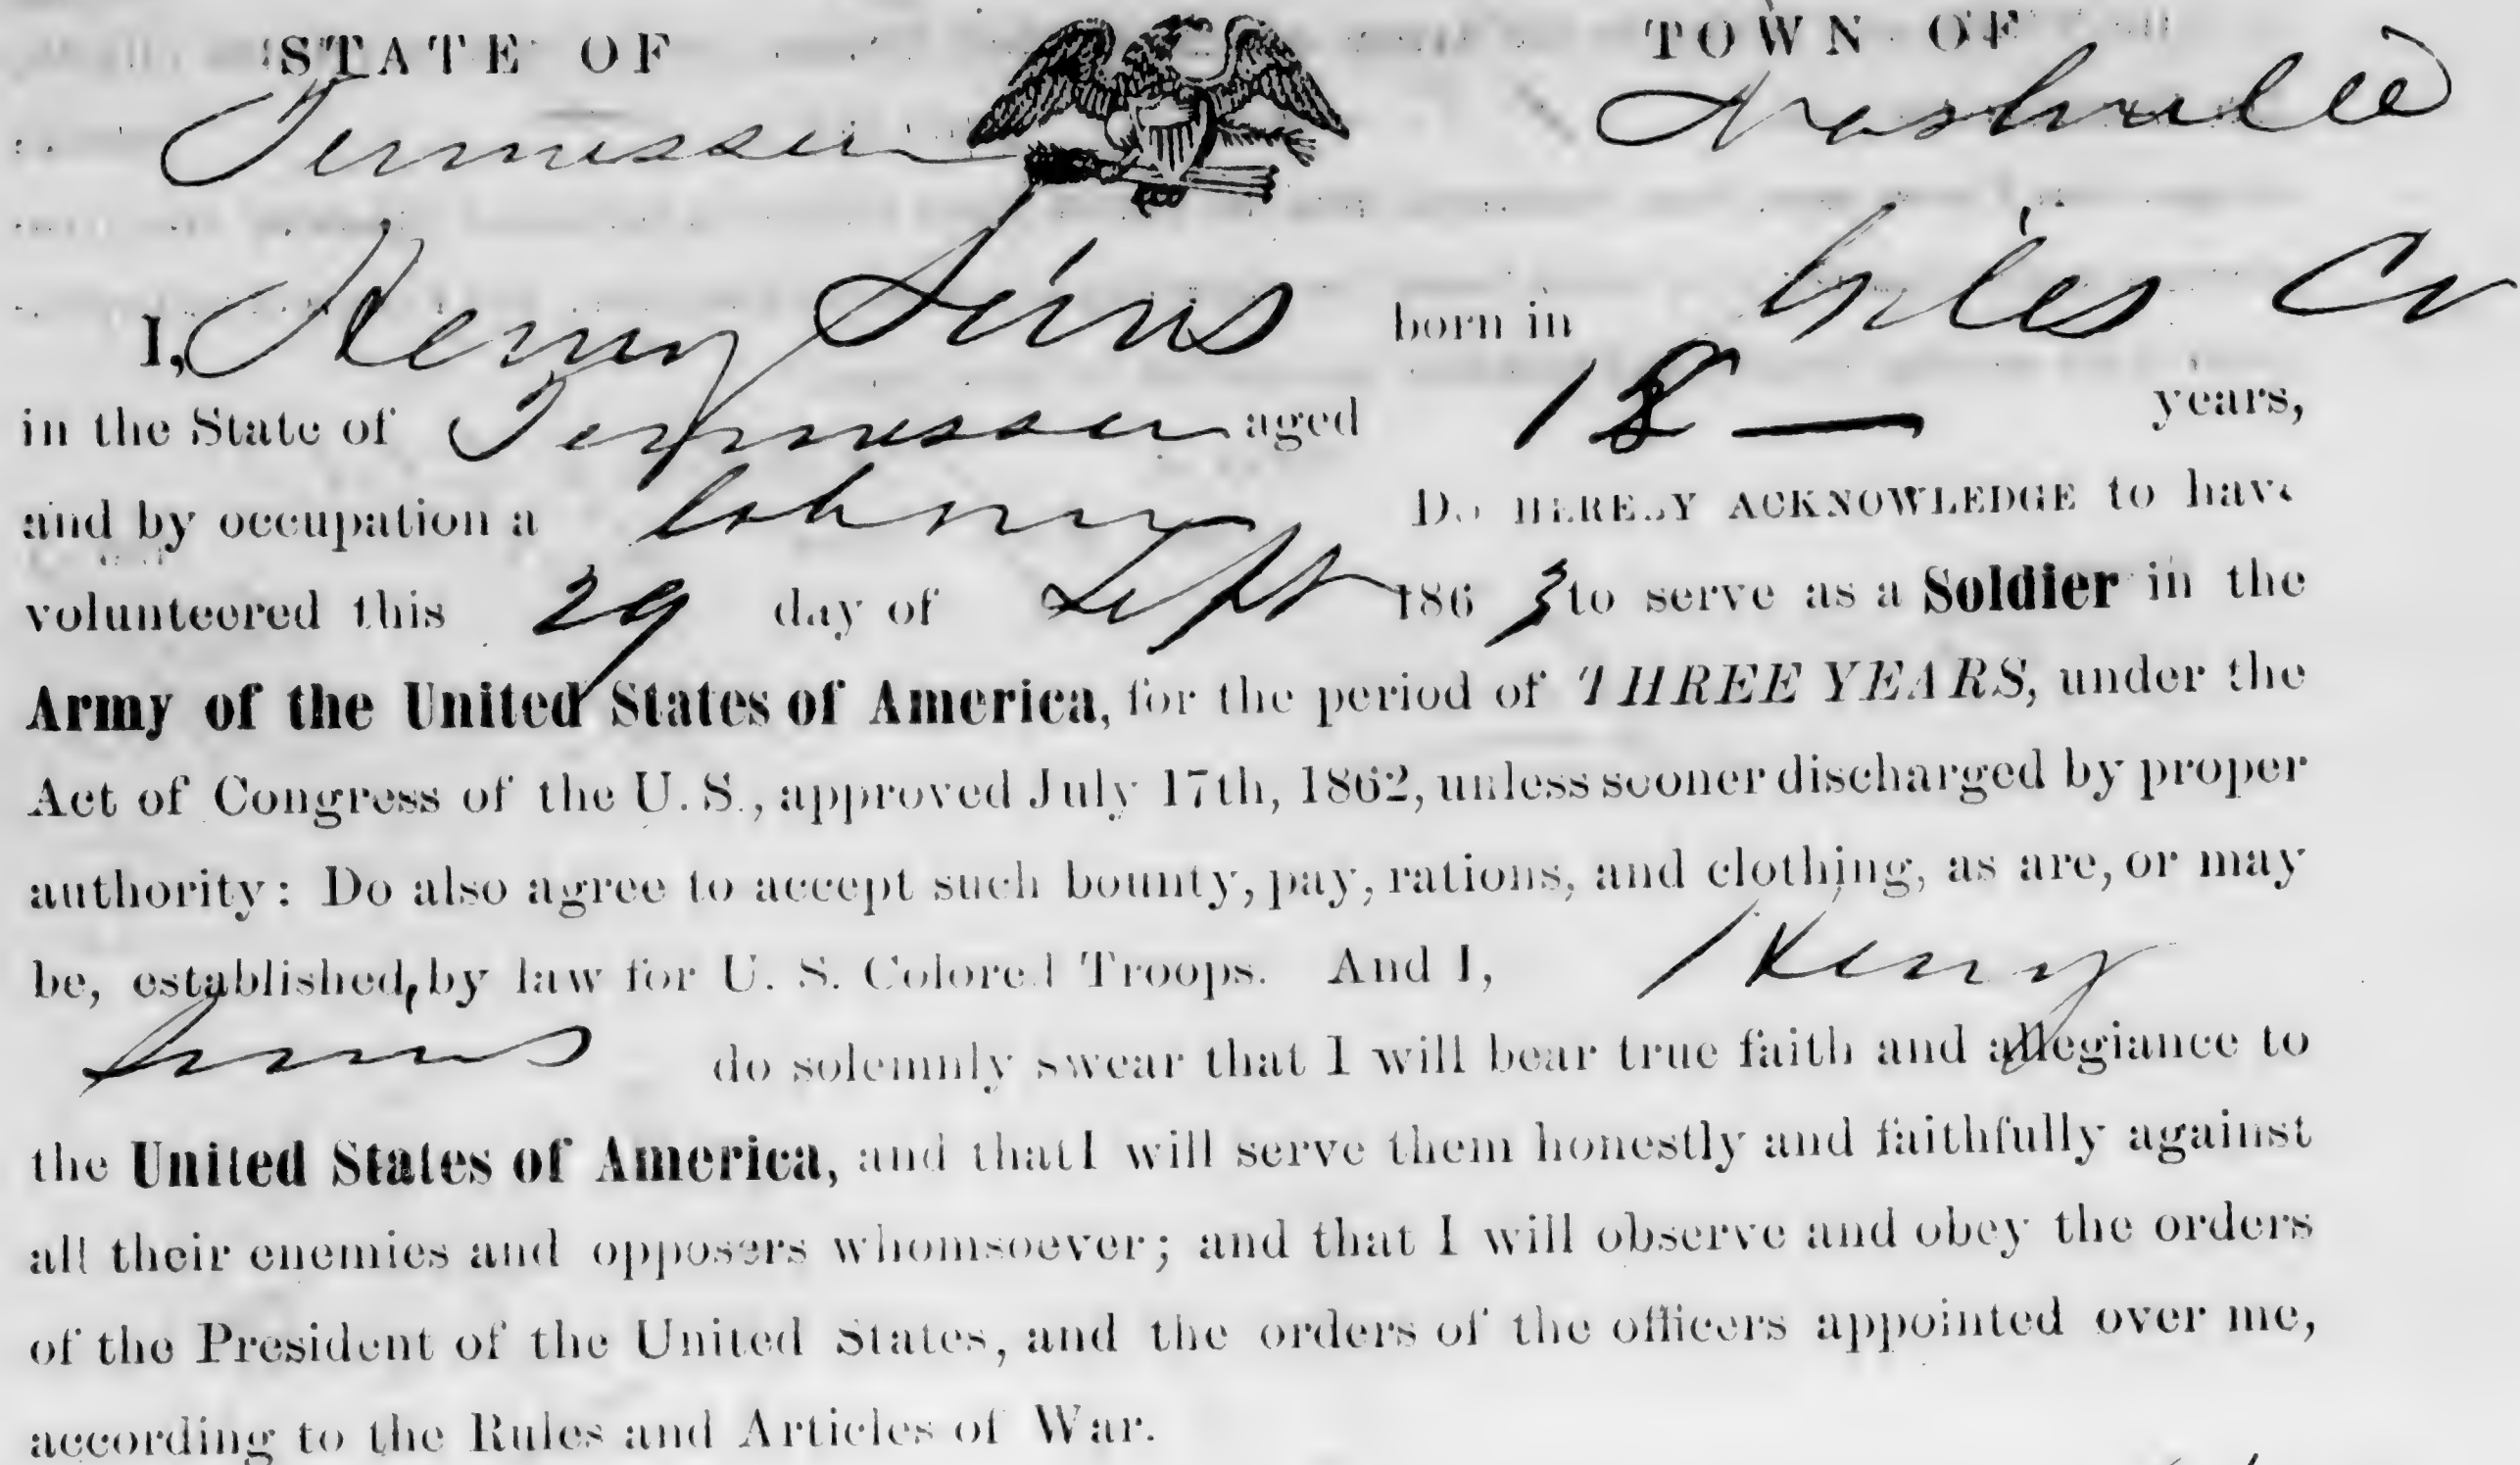 STATE OF
TOWN OF
Tennessee
Nashville
I, Henry Sims born in Giles Co
in the State of Tennessee aged 18 — years,
and by occupation a DO HEREBY ACKNOWLEDGE to have
volunteered this 29 day of Sept 1863 to serve as a Soldier in the
Army of the United States of America, for the period of THREE YEARS, under the
Act of Congress of the U. S., approved July 17th, 1862, unless sooner discharged by proper
authority: Do also agree to accept such bounty, pay, rations, and clothing, as are, or may
be, established, by law for U. S. Colored Troops. And I, Henry
Sims do solemnly swear that I will bear true faith and allegiance to
the United States of America, and that I will serve them honestly and faithfully against
all their enemies and opposers whomsoever; and that I will observe and obey the orders
of the President of the United States, and the orders of the officers appointed over me,
according to the Rules and Articles of War.